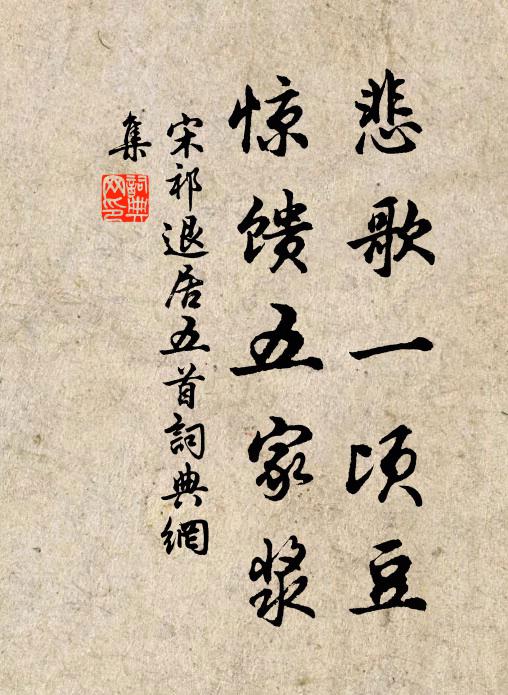 悲歌一顷豆
惊馈五家浆
宋祁退居五首詞典網
集
詞典网印